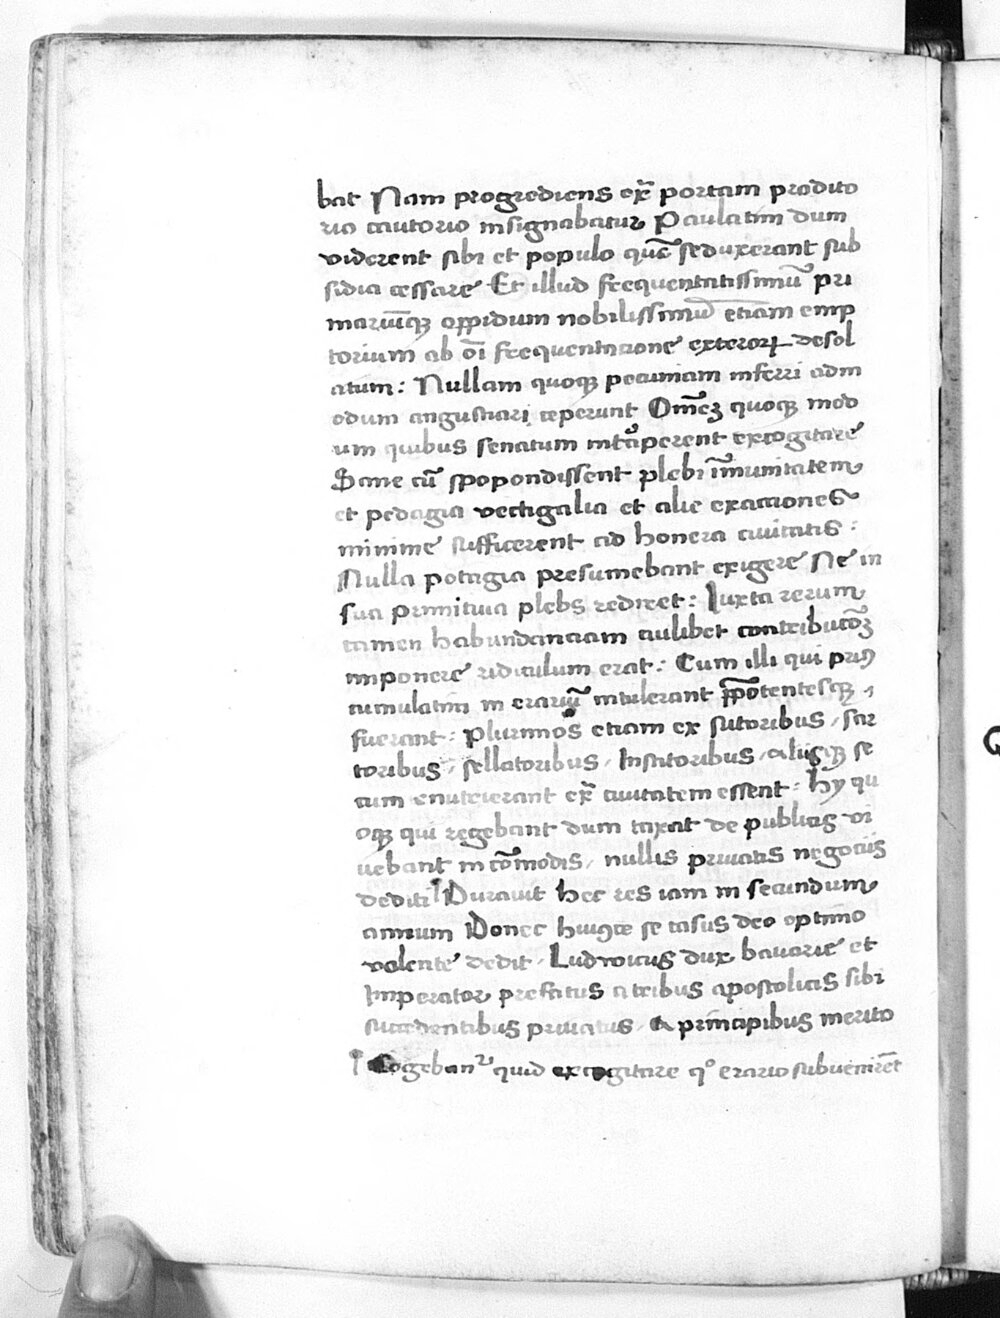 bat Nam progrediens ex̄ portam prodito
rio cautorio insignabatur Paulatim dum
viderent sibi et populo quē seduxerant sub
sidia cessare Et illud frequentatissimū pri
mariūqꝫ oppidum nobilissimū etiam emp
torium ab oī frequentacione exteroꝝ desol
atum: Nullam quoqꝫ pecuniam inferri adm
odum angustiari ceperunt Om̄eꝫ quoqꝫ mod
um quibus senatum excogitare
Sane cū spopondissent plebi īmunitatem
et pedagia vectigalia et alie exactiones
minime sufficerent ad honera ciuitatis:
Nulla potagia presumebant exigere Ne in
sua primituia plebs rediret: Iuxta rerum
tamen habundanciam cuilibet contribucōꝫ
imponere ridiculum erat: Cum illi qui priꝰ
cumulatim in erariū intulerant p̄potentesqꝫ
fuerant: Plurimos etiam ex sutoribus, sar
toribus, sellatoribus, Institoribus, aliisqꝫ se
cum enutrierant ex̄ ciuitatem essent: hy qu
oqꝫ qui regebant dum taxat de publicis vi
uebant in cōmodis, nullis priuatis negociis
dediti Durauit hec res iam in secundum
annum Donec huiꝰce se casus deo optimo
volente dedit, Ludwicus dux bauarie et
Imperator prefatus a tribus apostolicis sibi
succedentibus priuatus, a principibus merito
Cogebanᷣ quid excogitare qº erario subuenirēt